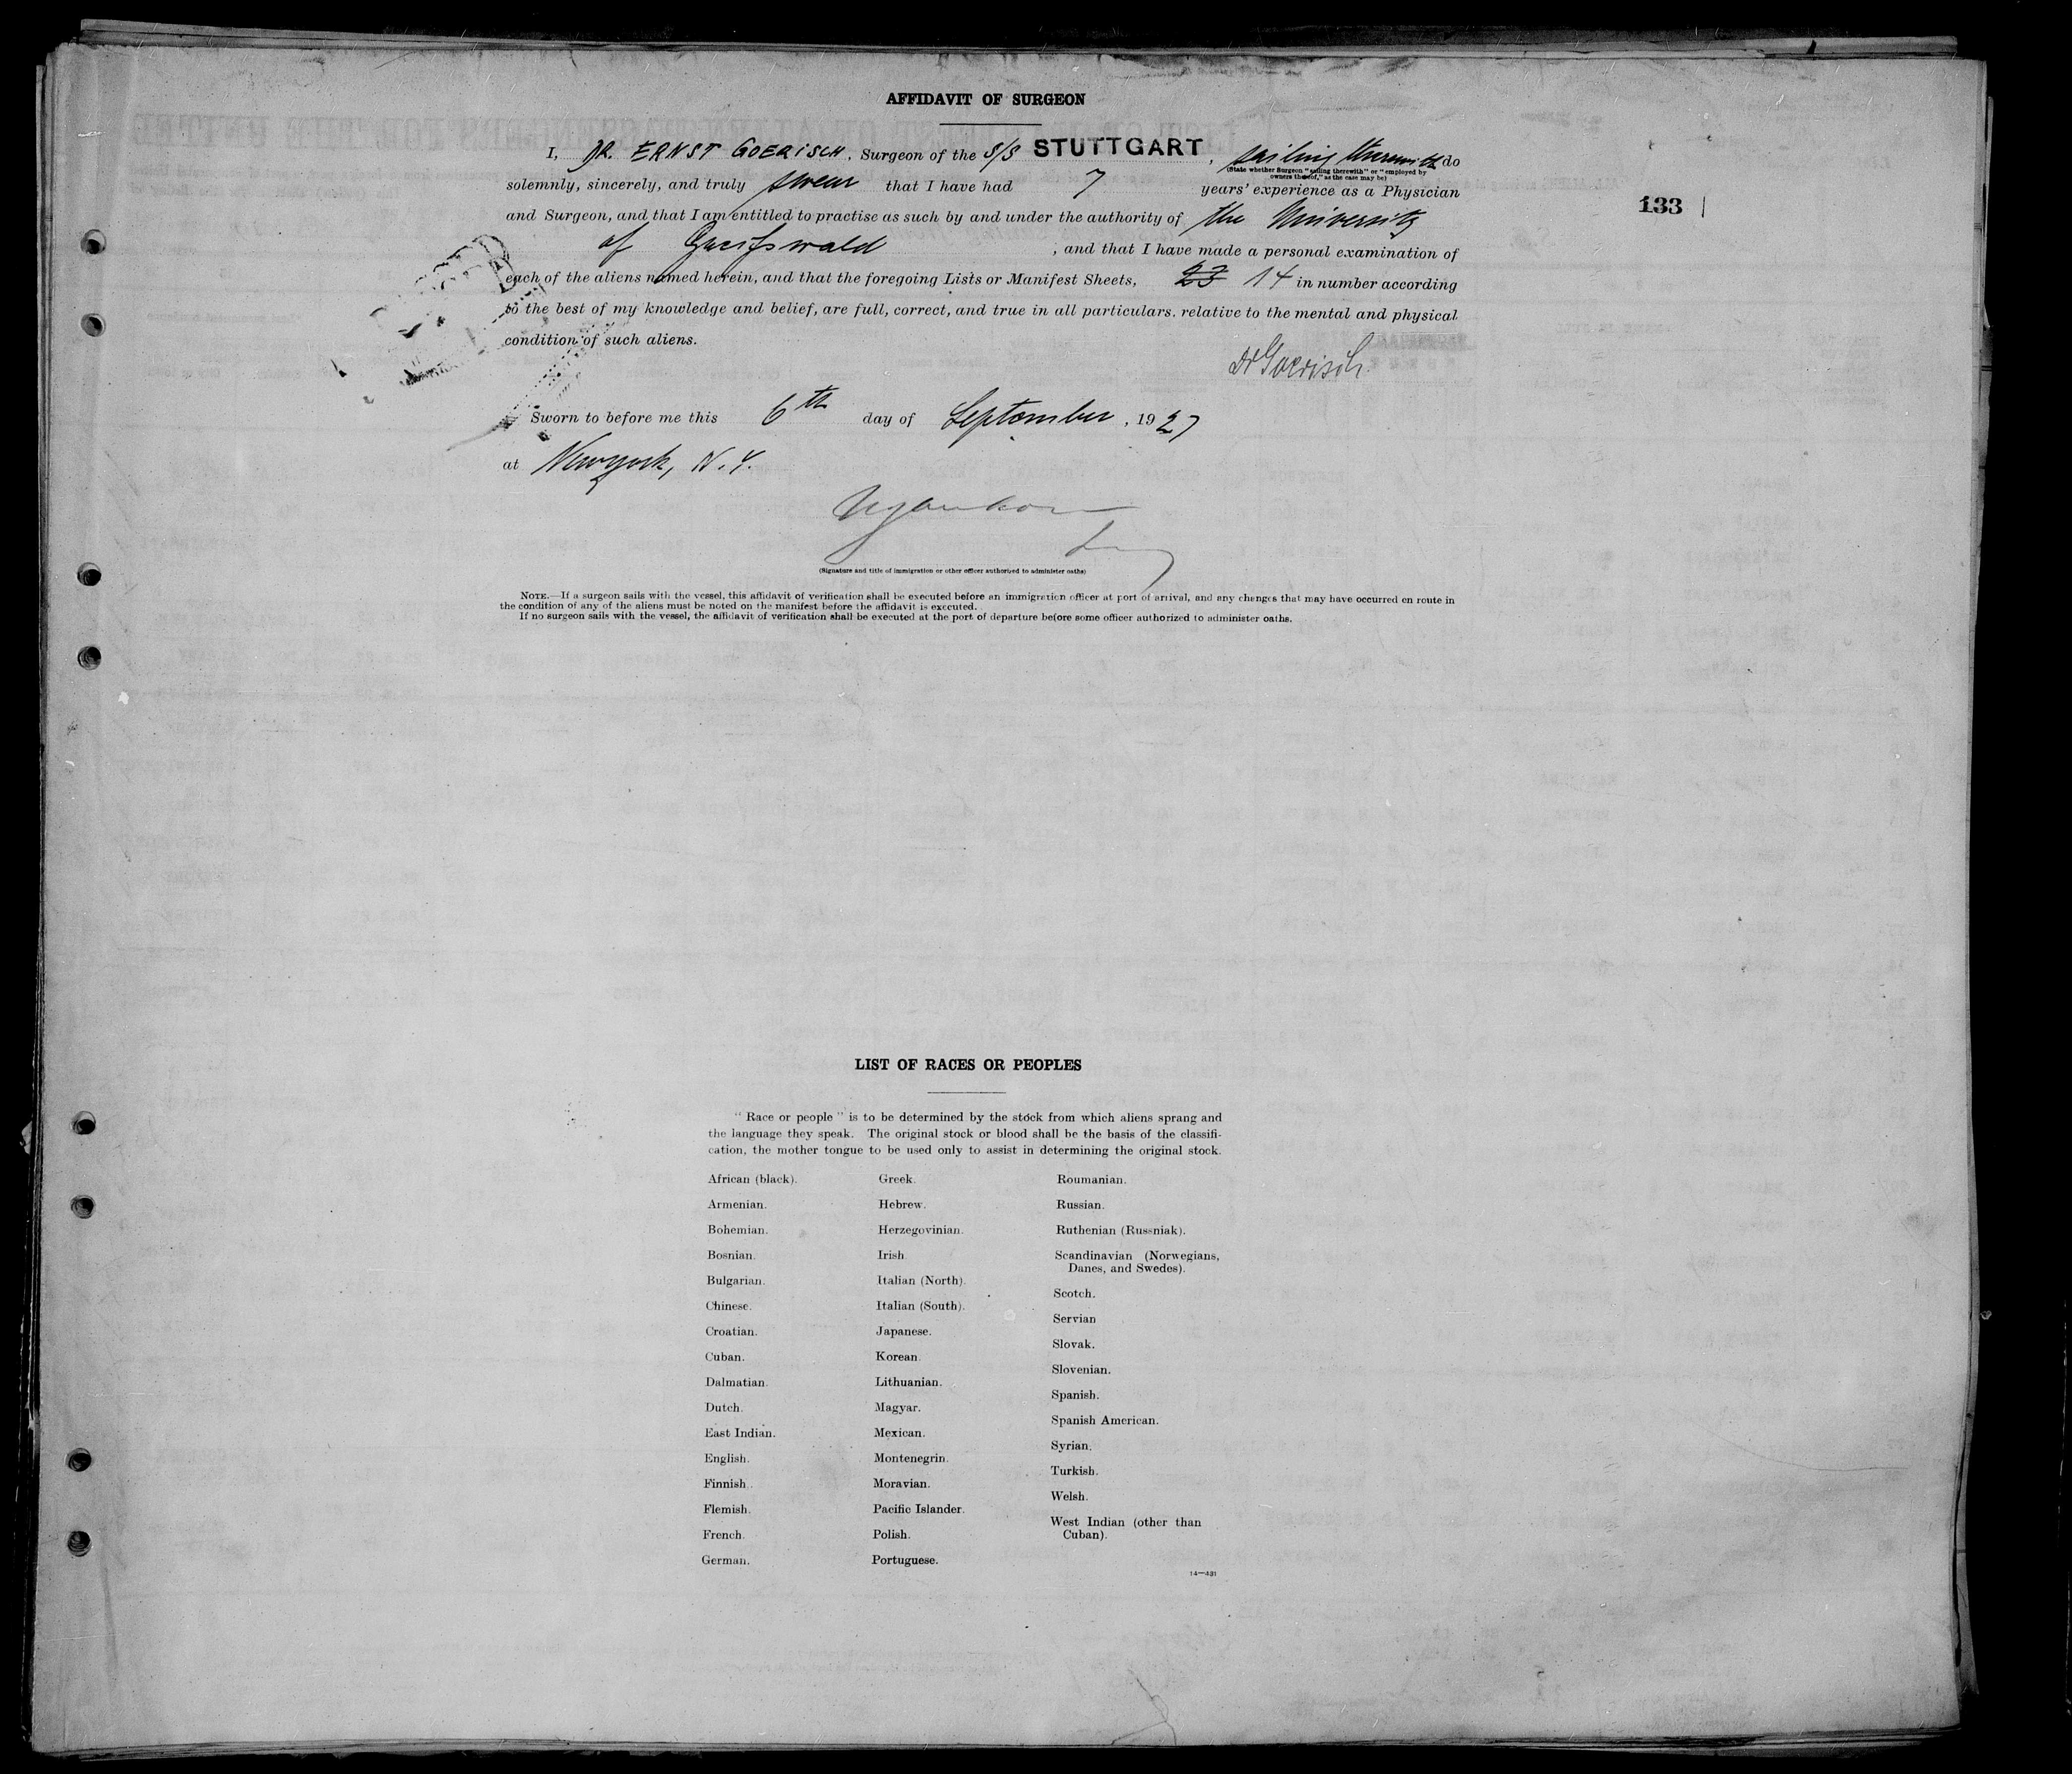 AFFIDAVIT OF SURGEON
I, DR. ERNST GOERISCH, Surgeon of the S/S STUTTGART, sailing therewith do
(State whether Surgeon "sailing therewith" or "employed by
owners thereof," as the case may be)
solemnly, sincerely, and truly swear that I have had 7 years' experience as a Physician
133
and Surgeon, and that I am entitled to practise as such by and under the authority of the University
of Greifswald, and that I have made a personal examination of
each of the aliens named herein, and that the foregoing Lists or Manifest Sheets, 23 14 in number according
to the best of my knowledge and belief, are full, correct, and true in all particulars, relative to the mental and physical
condition of such aliens.
Dr Goerisch
Sworn to before me this 6th day of September, 1927
at Newyork, N.Y.
(Signature and title of immigration or other officer authorized to administer oaths)
NOTE.—If a surgeon sails with the vessel, this affidavit of verification shall be executed before an immigration officer at port of arrival, and any changes that may have occurred en route in
the condition of any of the aliens must be noted on the manifest before the affidavit is executed.
If no surgeon sails with the vessel, the affidavit of verification shall be executed at the port of departure before some officer authorized to administer oaths.
LIST OF RACES OR PEOPLES
"Race or people" is to be determined by the stock from which aliens sprang and
the language they speak. The original stock or blood shall be the basis of the classifi-
cation, the mother tongue to be used only to assist in determining the original stock.
African (black).
Armenian.
Bohemian.
Bosnian.
Bulgarian.
Chinese.
Croatian.
Cuban.
Dalmatian.
Dutch.
East Indian.
English.
Finnish.
Flemish.
French.
German.
Greek.
Hebrew.
Herzegovinian.
Irish.
Italian (North).
Italian (South).
Japanese.
Korean.
Lithuanian.
Magyar.
Mexican.
Montenegrin.
Moravian.
Pacific Islander.
Polish.
Portuguese.
Roumanian.
Russian.
Ruthenian (Russniak).
Scandinavian (Norwegians,
Danes, and Swedes).
Scotch.
Servian
Slovak.
Slovenian.
Spanish.
Spanish American.
Syrian.
Turkish.
Welsh.
West Indian (other than
Cuban).
14—431